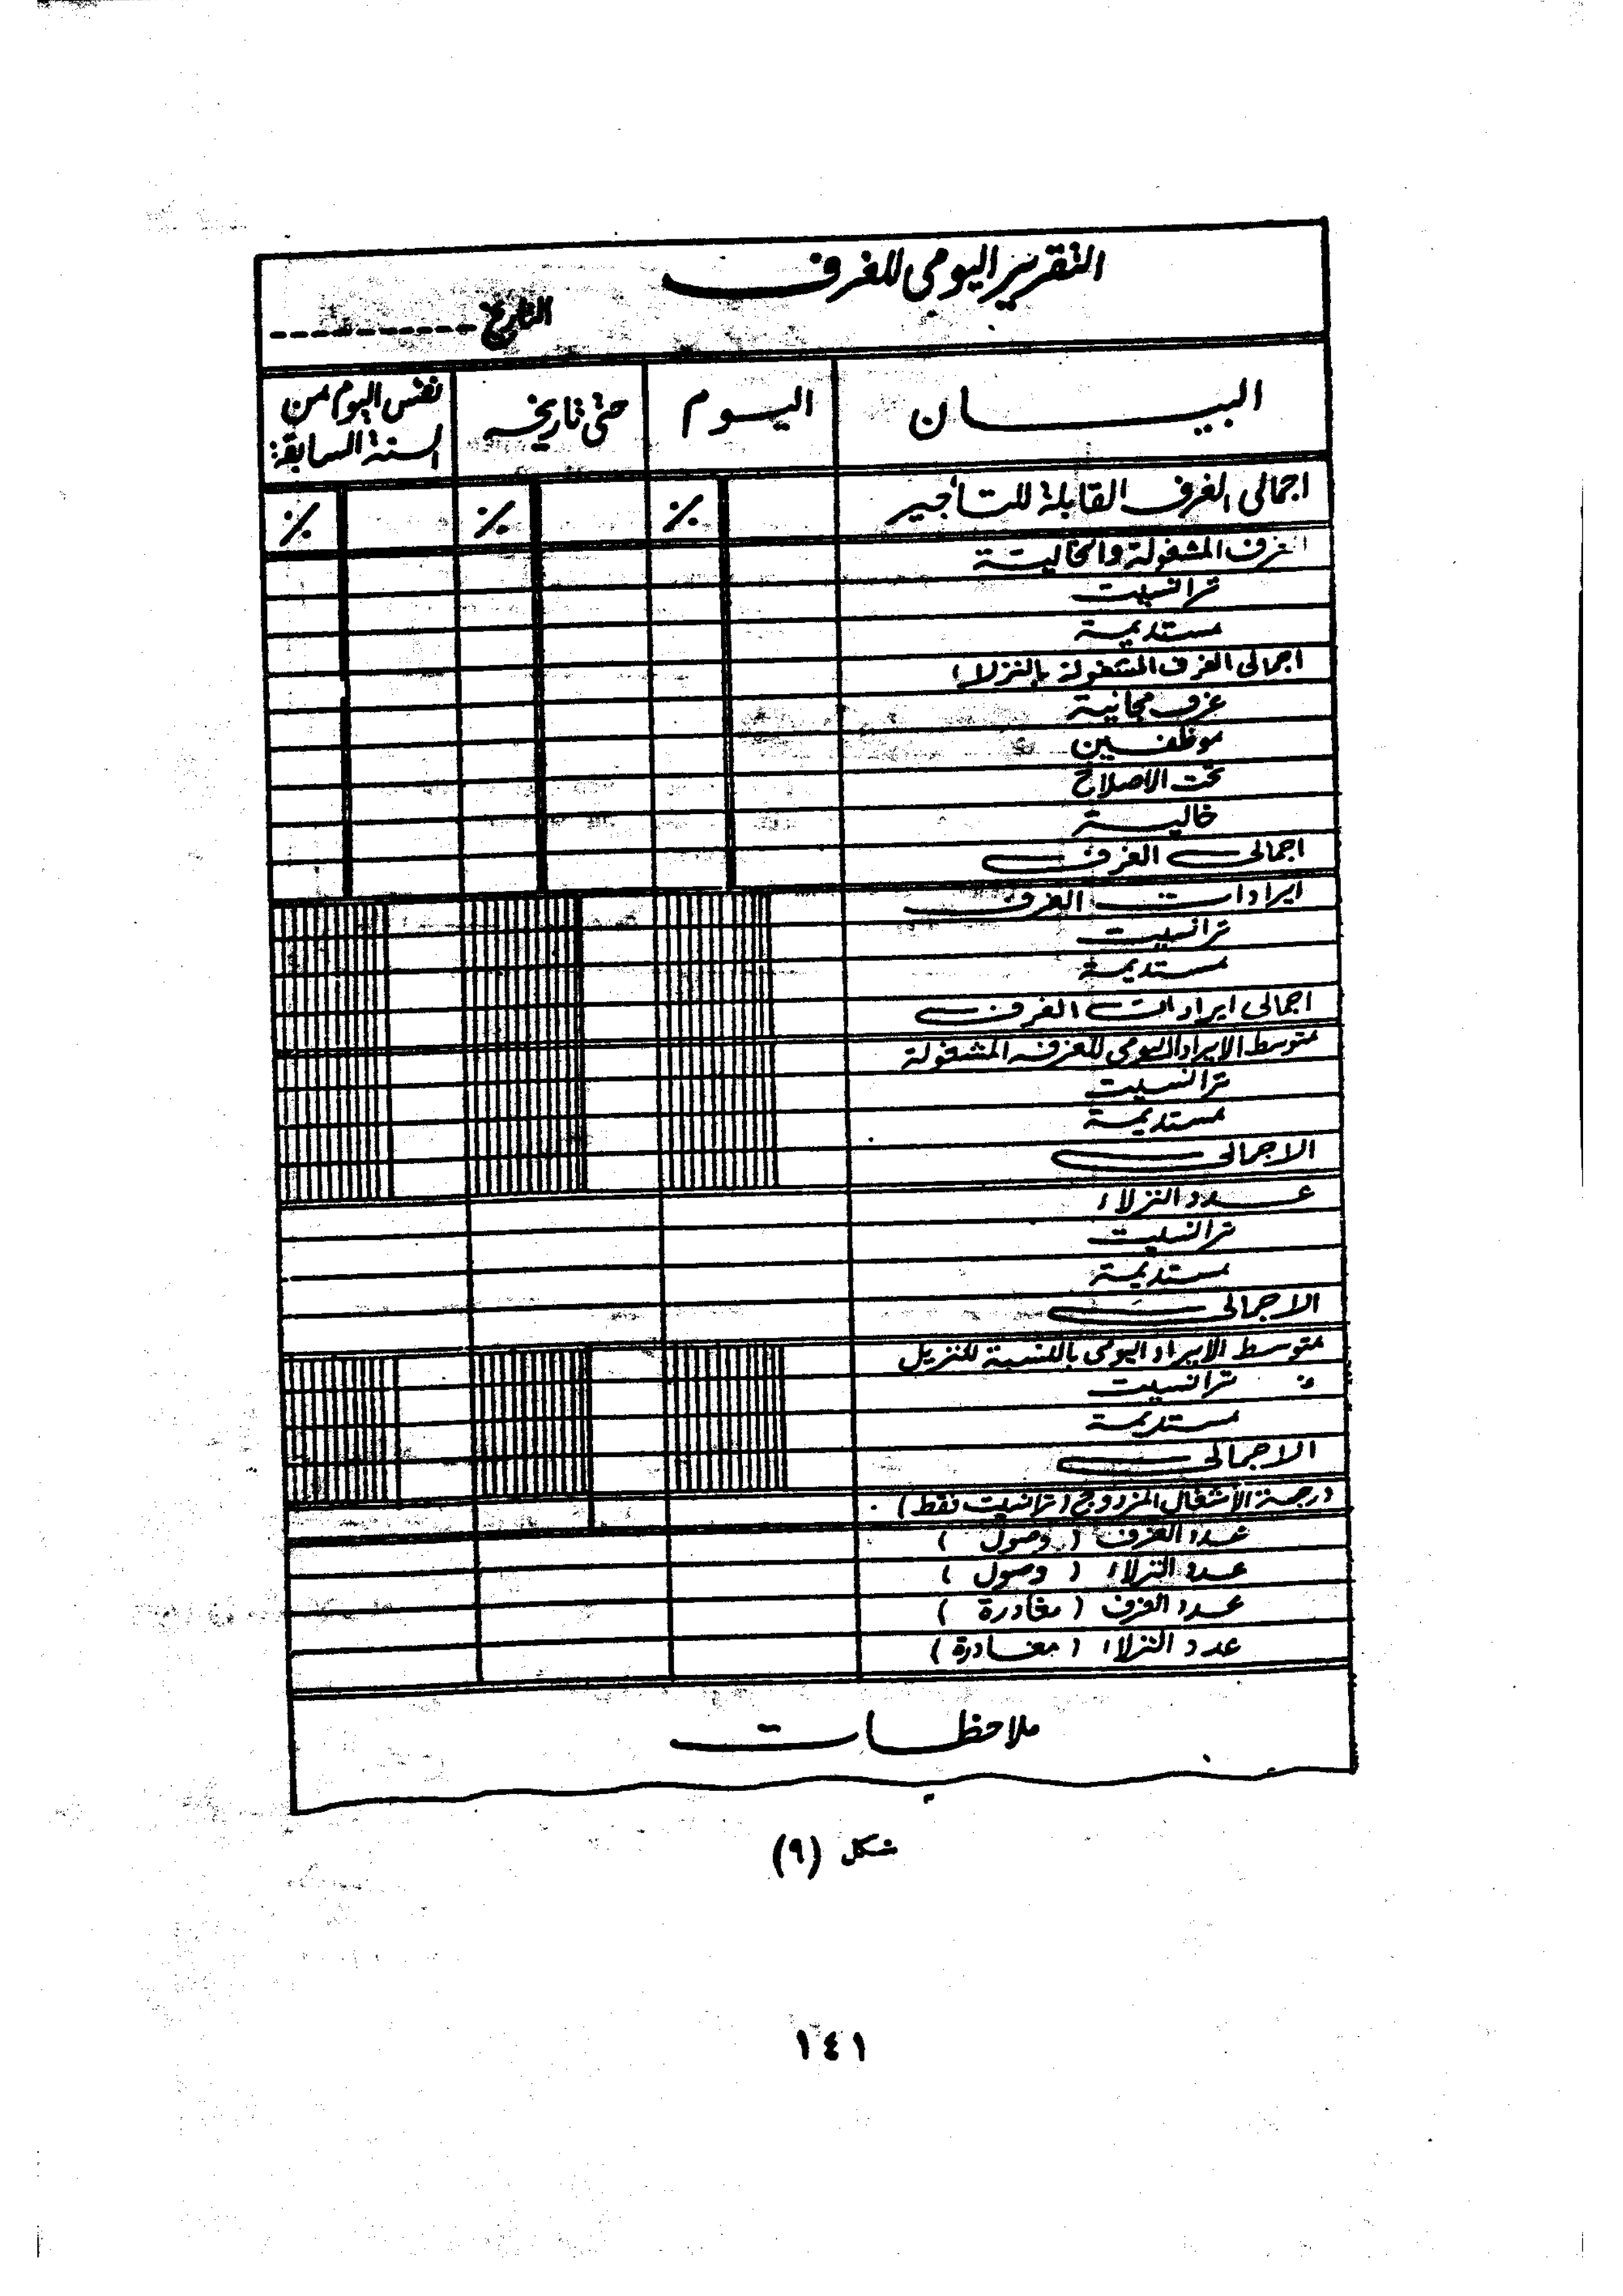 التقرير اليومى للغرف
التاريخ -----------
البيـــان اليــوم حتى تاريخه نفس اليوم من السنة السابقة
اجمالى الغرف القابلة للتأجير ٪ ٪ ٪
الغرف المشغولة والخالية
ترانسيت
مستديمة
اجمالى الغرف المشغولة بالنزلاء
غرف مجانية
موظفين
تحت الاصلاح
خالية
اجمالى الغرف
ايرادات الغرف
ترانسيت
مستديمة
اجمالى ايرادات الغرف
متوسط الايراد اليومى للغرفة المشغولة
ترانسيت
مستديمة
الاجمالى
عدد النزلاء
ترانسيت
مستديمة
الاجمالى
متوسط الايراد اليومى بالنسبة للنزيل
ترانسيت
مستديمة
الاجمالى
درجة الأشغال المزدوج (ترانسيت فقط)
عدد الغرف (وصول)
عدد النزلاء (وصول)
عدد الغرف (مغادرة)
عدد النزلاء (مغادرة)
ملاحظات
شكل (٩)
١٤١